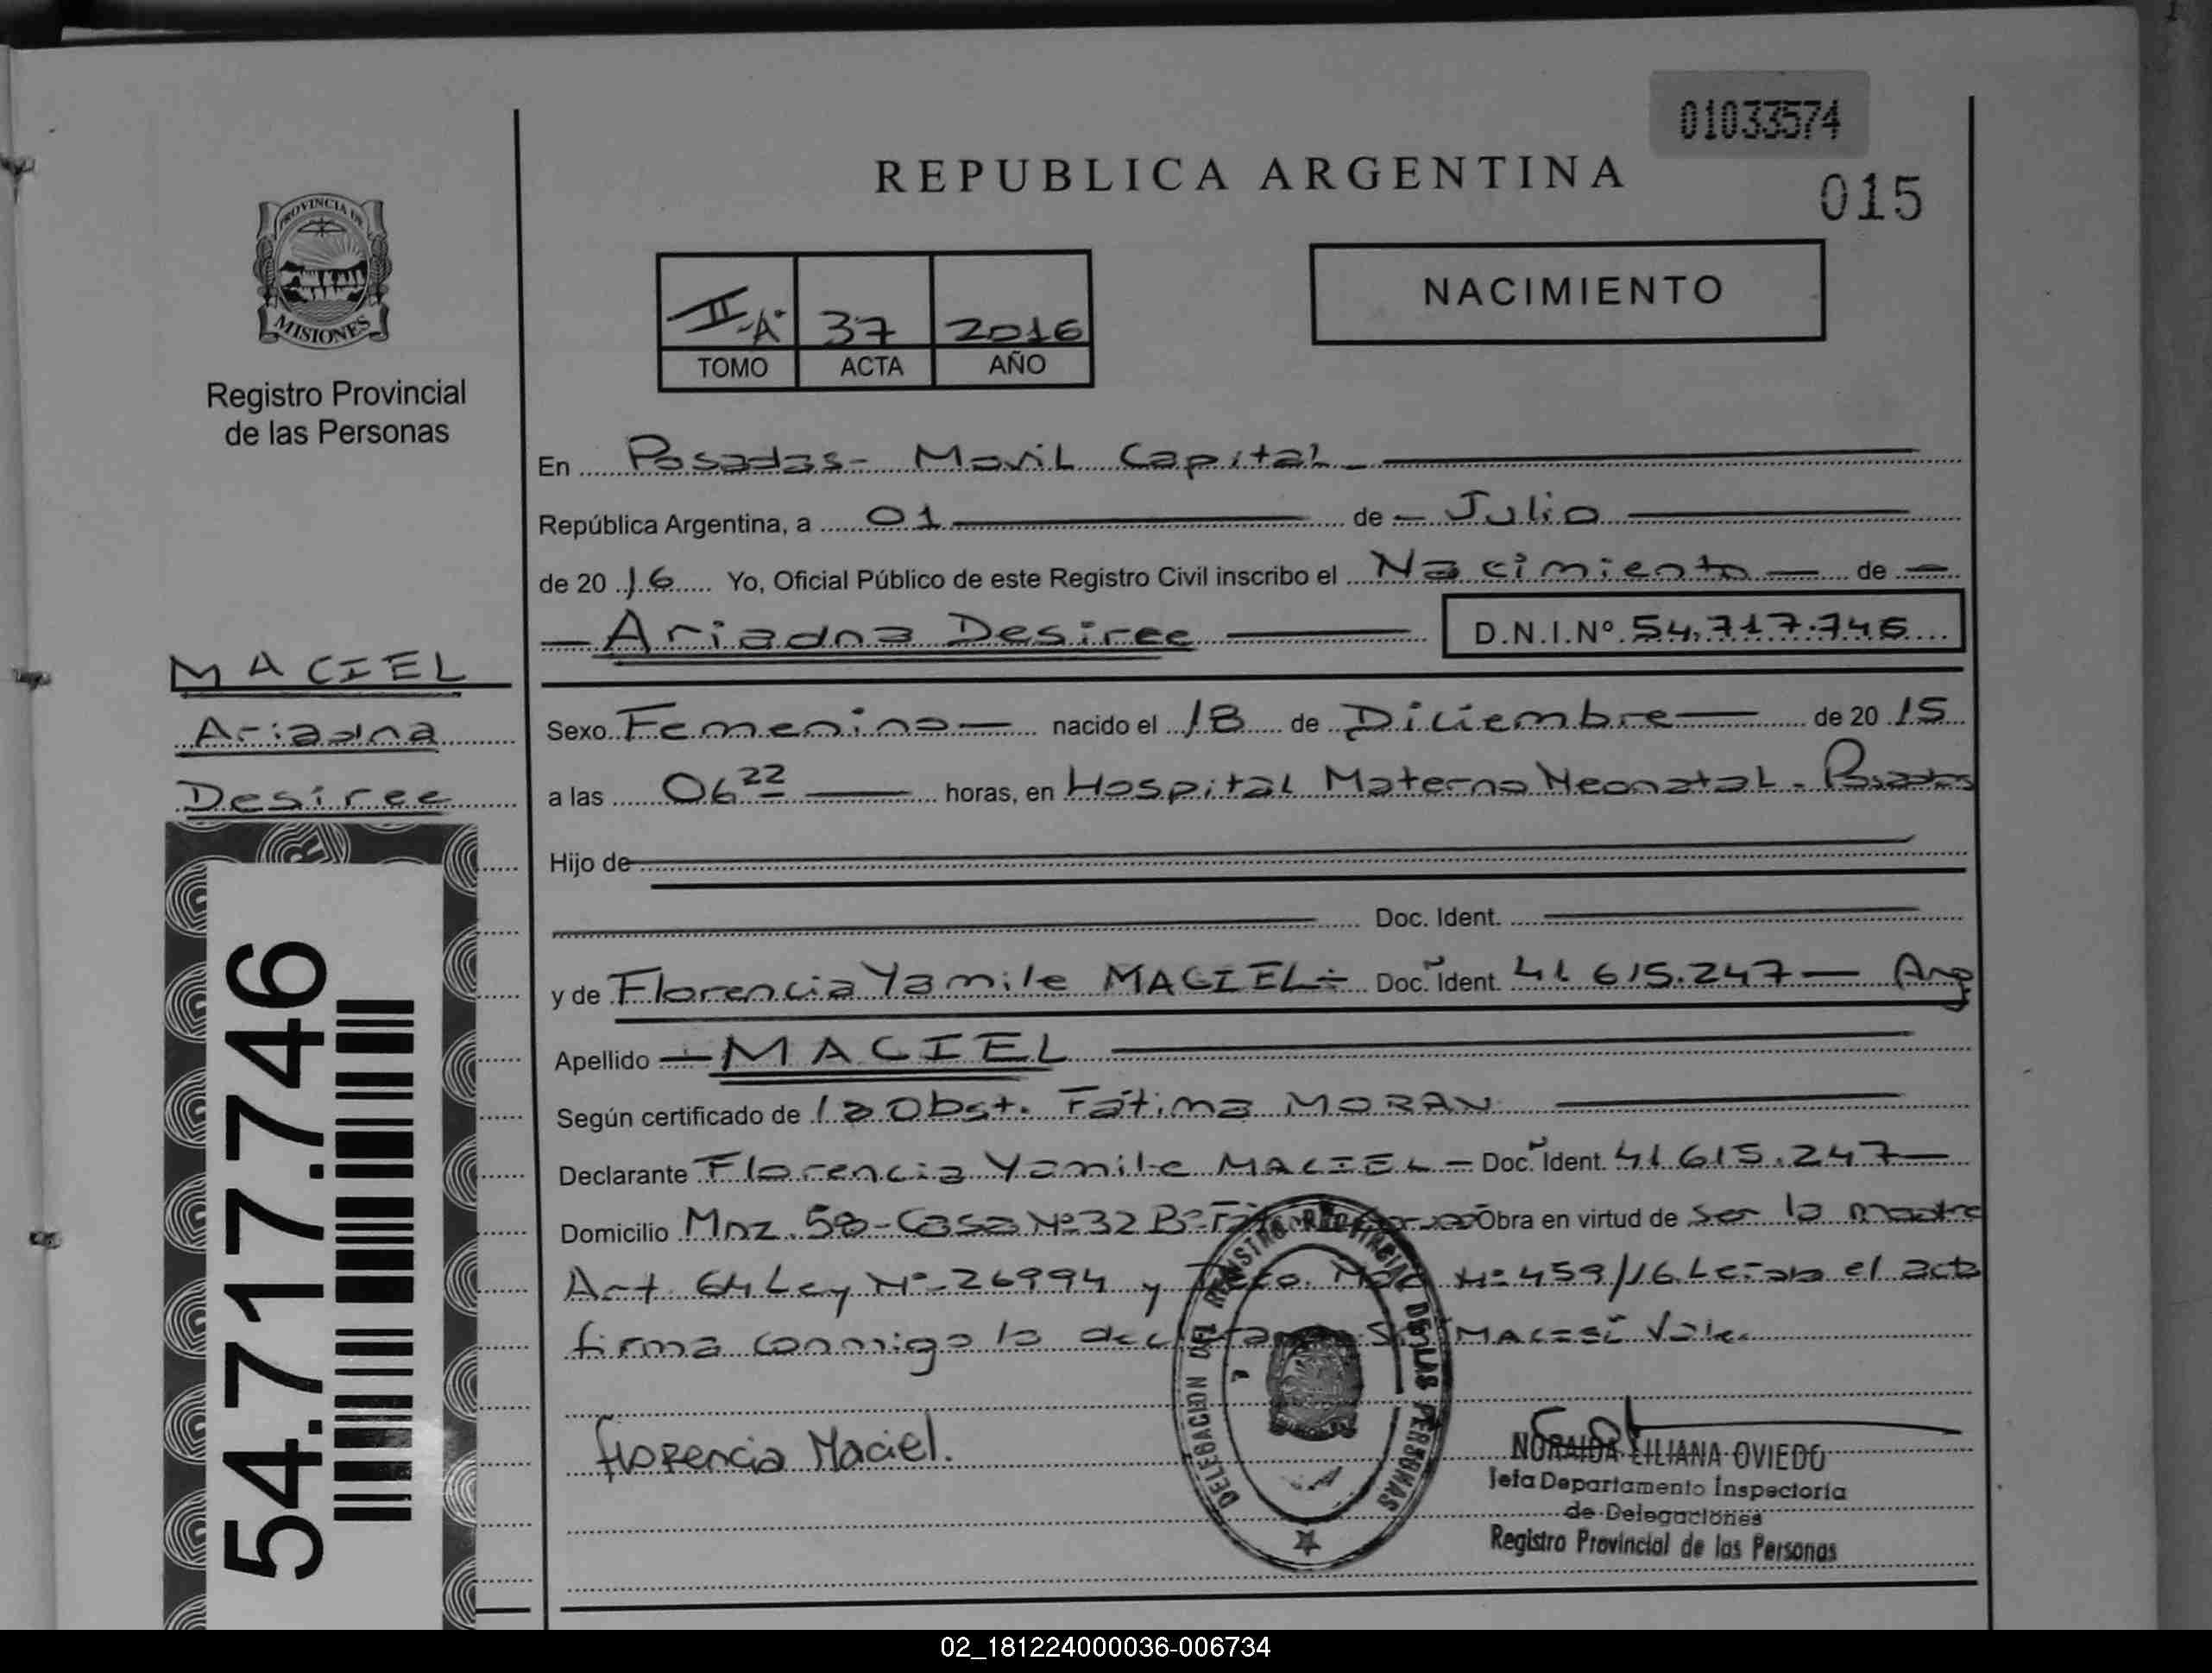 01033574
REPUBLICA ARGENTINA
015
PROVINCIA DE
MISIONES
Registro Provincial
de las Personas
II-"A" 37 2016
TOMO ACTA AÑO
NACIMIENTO
En Posadas- Movil Capital
República Argentina, a 01 de Julio
de 2016 Yo, Oficial Público de este Registro Civil inscribo el Nacimiento de
Ariadna Desiree D.N.I.Nº 54.717.746
MACIEL
Ariadna
Desiree
Sexo Femenino nacido el 18 de Diciembre de 2015
a las 06 22 horas, en Hospital Materno Neonatal - Posadas
Hijo de
Doc. Ident.
y de Florencia Yamile MACIEL Doc. Ident. 41615.247 Arg
Apellido MACIEL
Según certificado de la Obst. Fátima MORAN
Declarante Florencia Yamile MACIEL Doc. Ident. 41615.247
Domicilio Mnz. 58-Casa Nº32 Bº Obra en virtud de ser la madre
Art 64 Ley Nº-26994 y Nº 459/16. el acta
firma conmigo la Vale.
54.717.746
Florencia Maciel.
DELEGACION DEL REGISTRO PROVINCIAL DE LAS PERSONAS
NORAIDA LILIANA OVIEDO
Jefa Departamento Inspectoria
de Delegaciones
Registro Provincial de las Personas
02_181224000036-006734